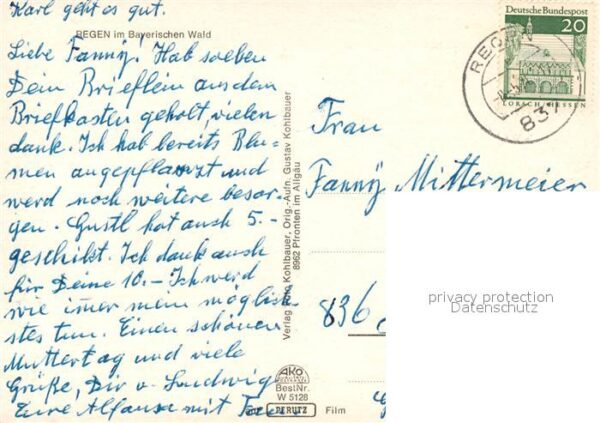 Karl geht es gut.
REGEN im Bayerischen Wald
Liebe Fanny! Hab soeben
Dein Brieflein aus dem
Briefkasten geholt, vielen
dank. Ich hab bereits Blu-
men angepflanzt und
werd noch weitere besor-
gen. Gustl hat auch 5.-
geschikt. Ich dank auch
für Deine 10.- Ich werd
wie immer mein möglich-
stes tun. Einen schönen
Muttertag und viele
Grüße, Dir u. Ludwig
Eure Alfause mit
Verlag Kohlbauer, Orig.-Aufn. Gustav Kohlbauer
8962 Pfronten im Allgäu
Deutsche Bundespost
20
LORSCH/HESSEN
REGEN
837
Frau
Fanny Mittermeier
836
privacy protection
Datenschutz
AKO
BestNr.
W 5128
PERUTZ Film